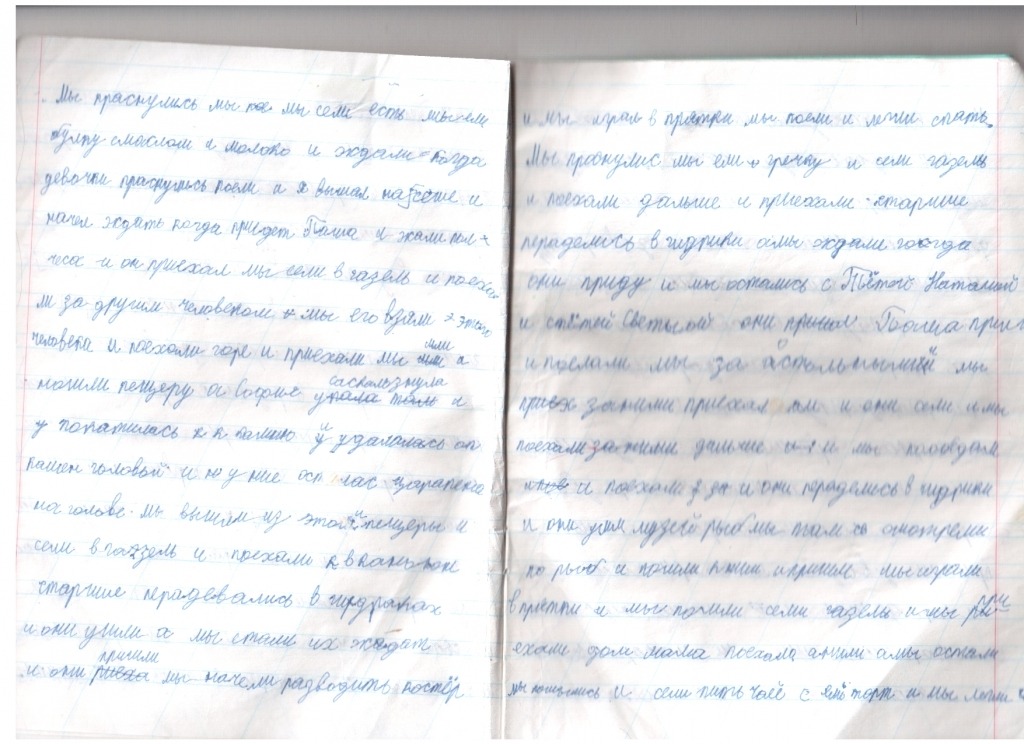 Мы праснулись мы пое мы сели есть мы ели
булку смослом и молоко и ждали когда
девочки праснулись поели и я вышал на
начел ждать когда придет Паша и ждали пол
чеса и он приехал мы сели в газель и поехал
ли за другим человеком и мы его взяли этого
человека и поехали горе и приехали мы или
нашли пещеру а Софие саскользнула упала там и
у покатилась к к камню и у ударилась оп
камен головый и ю у ние ост лас царапена
на голове. мы вышли из этой пещеры и
сели в газель и поехали к в каньон
старшие перадевались в гидрыках
и они ушли а мы стали их ждат
и они пришли мы начели разводить костёр
и мы играли в прятки мы поели и легли спать.
Мы проснулис мы ели гречку и сели газель
и поехали дальше и приехали старшие
перадевись в гидрики амы ждали когда
они приду и мы остались с Тётой Наталий
и с тётей Светылой они пришли Гоша приш
и поехали мы за остольными мы
за ними приехал и они сели и мы
поехали за жими дальше и мы пообдали
и поехали и они перадевись в гидрики
и они ушли музей рыб мы там смотрели
по рыб и пошли к ним и пришли мы играли
в прятки и мы пошли сели газель и мы
ехали дом мама поехала амы остали
мы помылись и сели пить чай с ей торт и мы легли